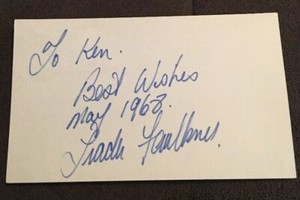 To Ken.
Best Wishes
May 1968.
Trader Faulkner.